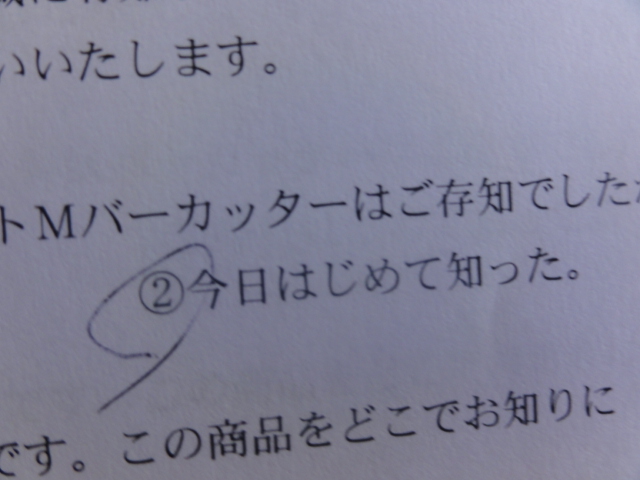 いいたします。
トMバーカッターはご存知でした
②今日はじめて知った。
です。この商品をどこでお知りに